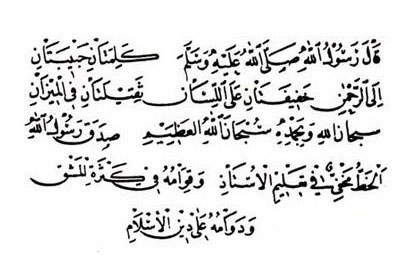 قَالَ رَسُولُ اللهِ صَلَّى اللهُ عَلَيْهِ وَسَلَّمَ كَلِمَتَانِ حَبِيبَتَانِ
اِلَى الرَّحْمٰنِ خَفِيفَتَانِ عَلَى اللِّسَانِ ثَقِيلَتَانِ فِي الْمِيزَانِ
سُبْحَانَ اللهِ وَبِحَمْدِهِ سُبْحَانَ اللهِ الْعَظِيمِ صَدَقَ رَسُولُ اللهِ
اَلْخَطُّ مَخْفِيٌّ فِي تَعْلِيمِ الْاُسْتَاذِ وَقِوَامُهُ فِي كَثْرَةِ الْمَشْقِ
وَدَوَامُهُ عَلَى دِينِ الْاِسْلَامِ